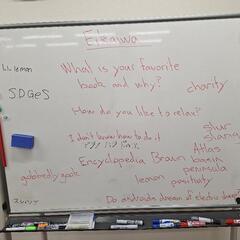 Eikaiwa
LL lemon
What is your favorite
book and why?
charity
SDGeS
How do you like to relax?
slur
slang
I don't know how to do it
Atlas
Encyclopedia Brown
basin
peninsula
gobbledygook
lemon
positivity
Do androids dream of electric sheep?